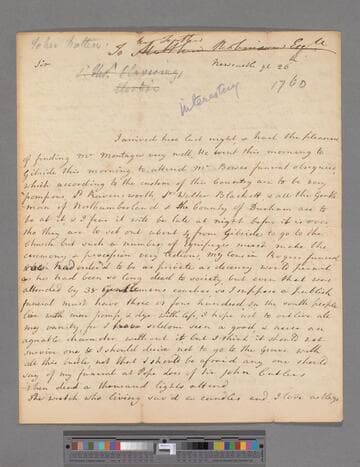 To Matthew Robinson Esqre
Sir
Newcastle ye 26th
1760
interesting
I arrived here last night & had the pleasure
of finding Mr Montagu very well, He went this morning to
Gibside this morning to attend Mr Bowes funeral obsequies
which according to the custom of this Country are to be very
pompous, Ld Ravensworth Sr Walter Blackett & all the Gentle
men of Northumberland & the County of Durham are to
be at it & I fear it will be late at night before it is over
tho they are to set out about 4 from Gibside to go to the
Church but such a number of equipages must make the
ceremony & procession very tedious, My cousin Rogers funeral
had orderd to be as private as decency would permit
as he had been so long dead to society but even that was
attended by 38 Gentlemens coaches so I suppose a publick
funeral must have three or four hundred. In the south people
live with more pomp, & dye with less, I hope not to outlive all
my vanity, for I have seldom seen a good & never an
agreable character without it but I think it should not
survive one & I should desire not to go to the Grave with
all this bustle not that I should be afraid any one should
say of my funeral as Pope does of Sir John Cutlers
When dead a thousand lights attend
The wretch who living sav'd a candles end I love as large